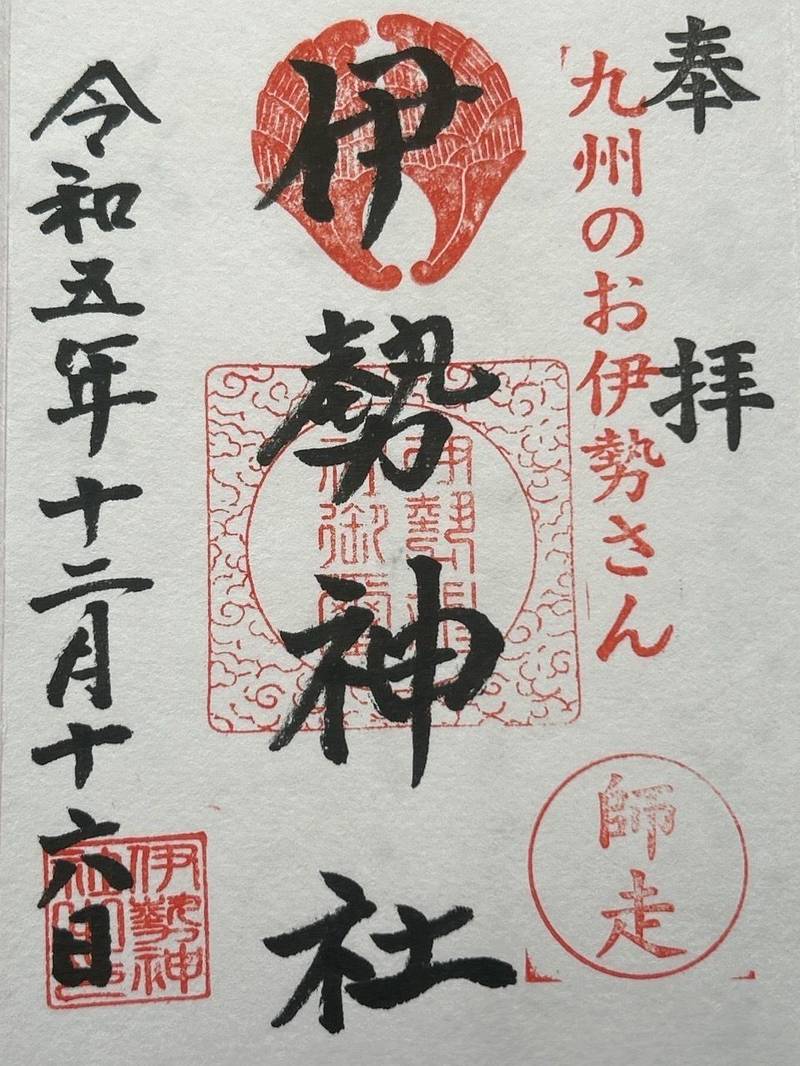 奉拝
九州のお伊勢さん
師走
伊勢神社
令和五年十二月十六日
伊勢神